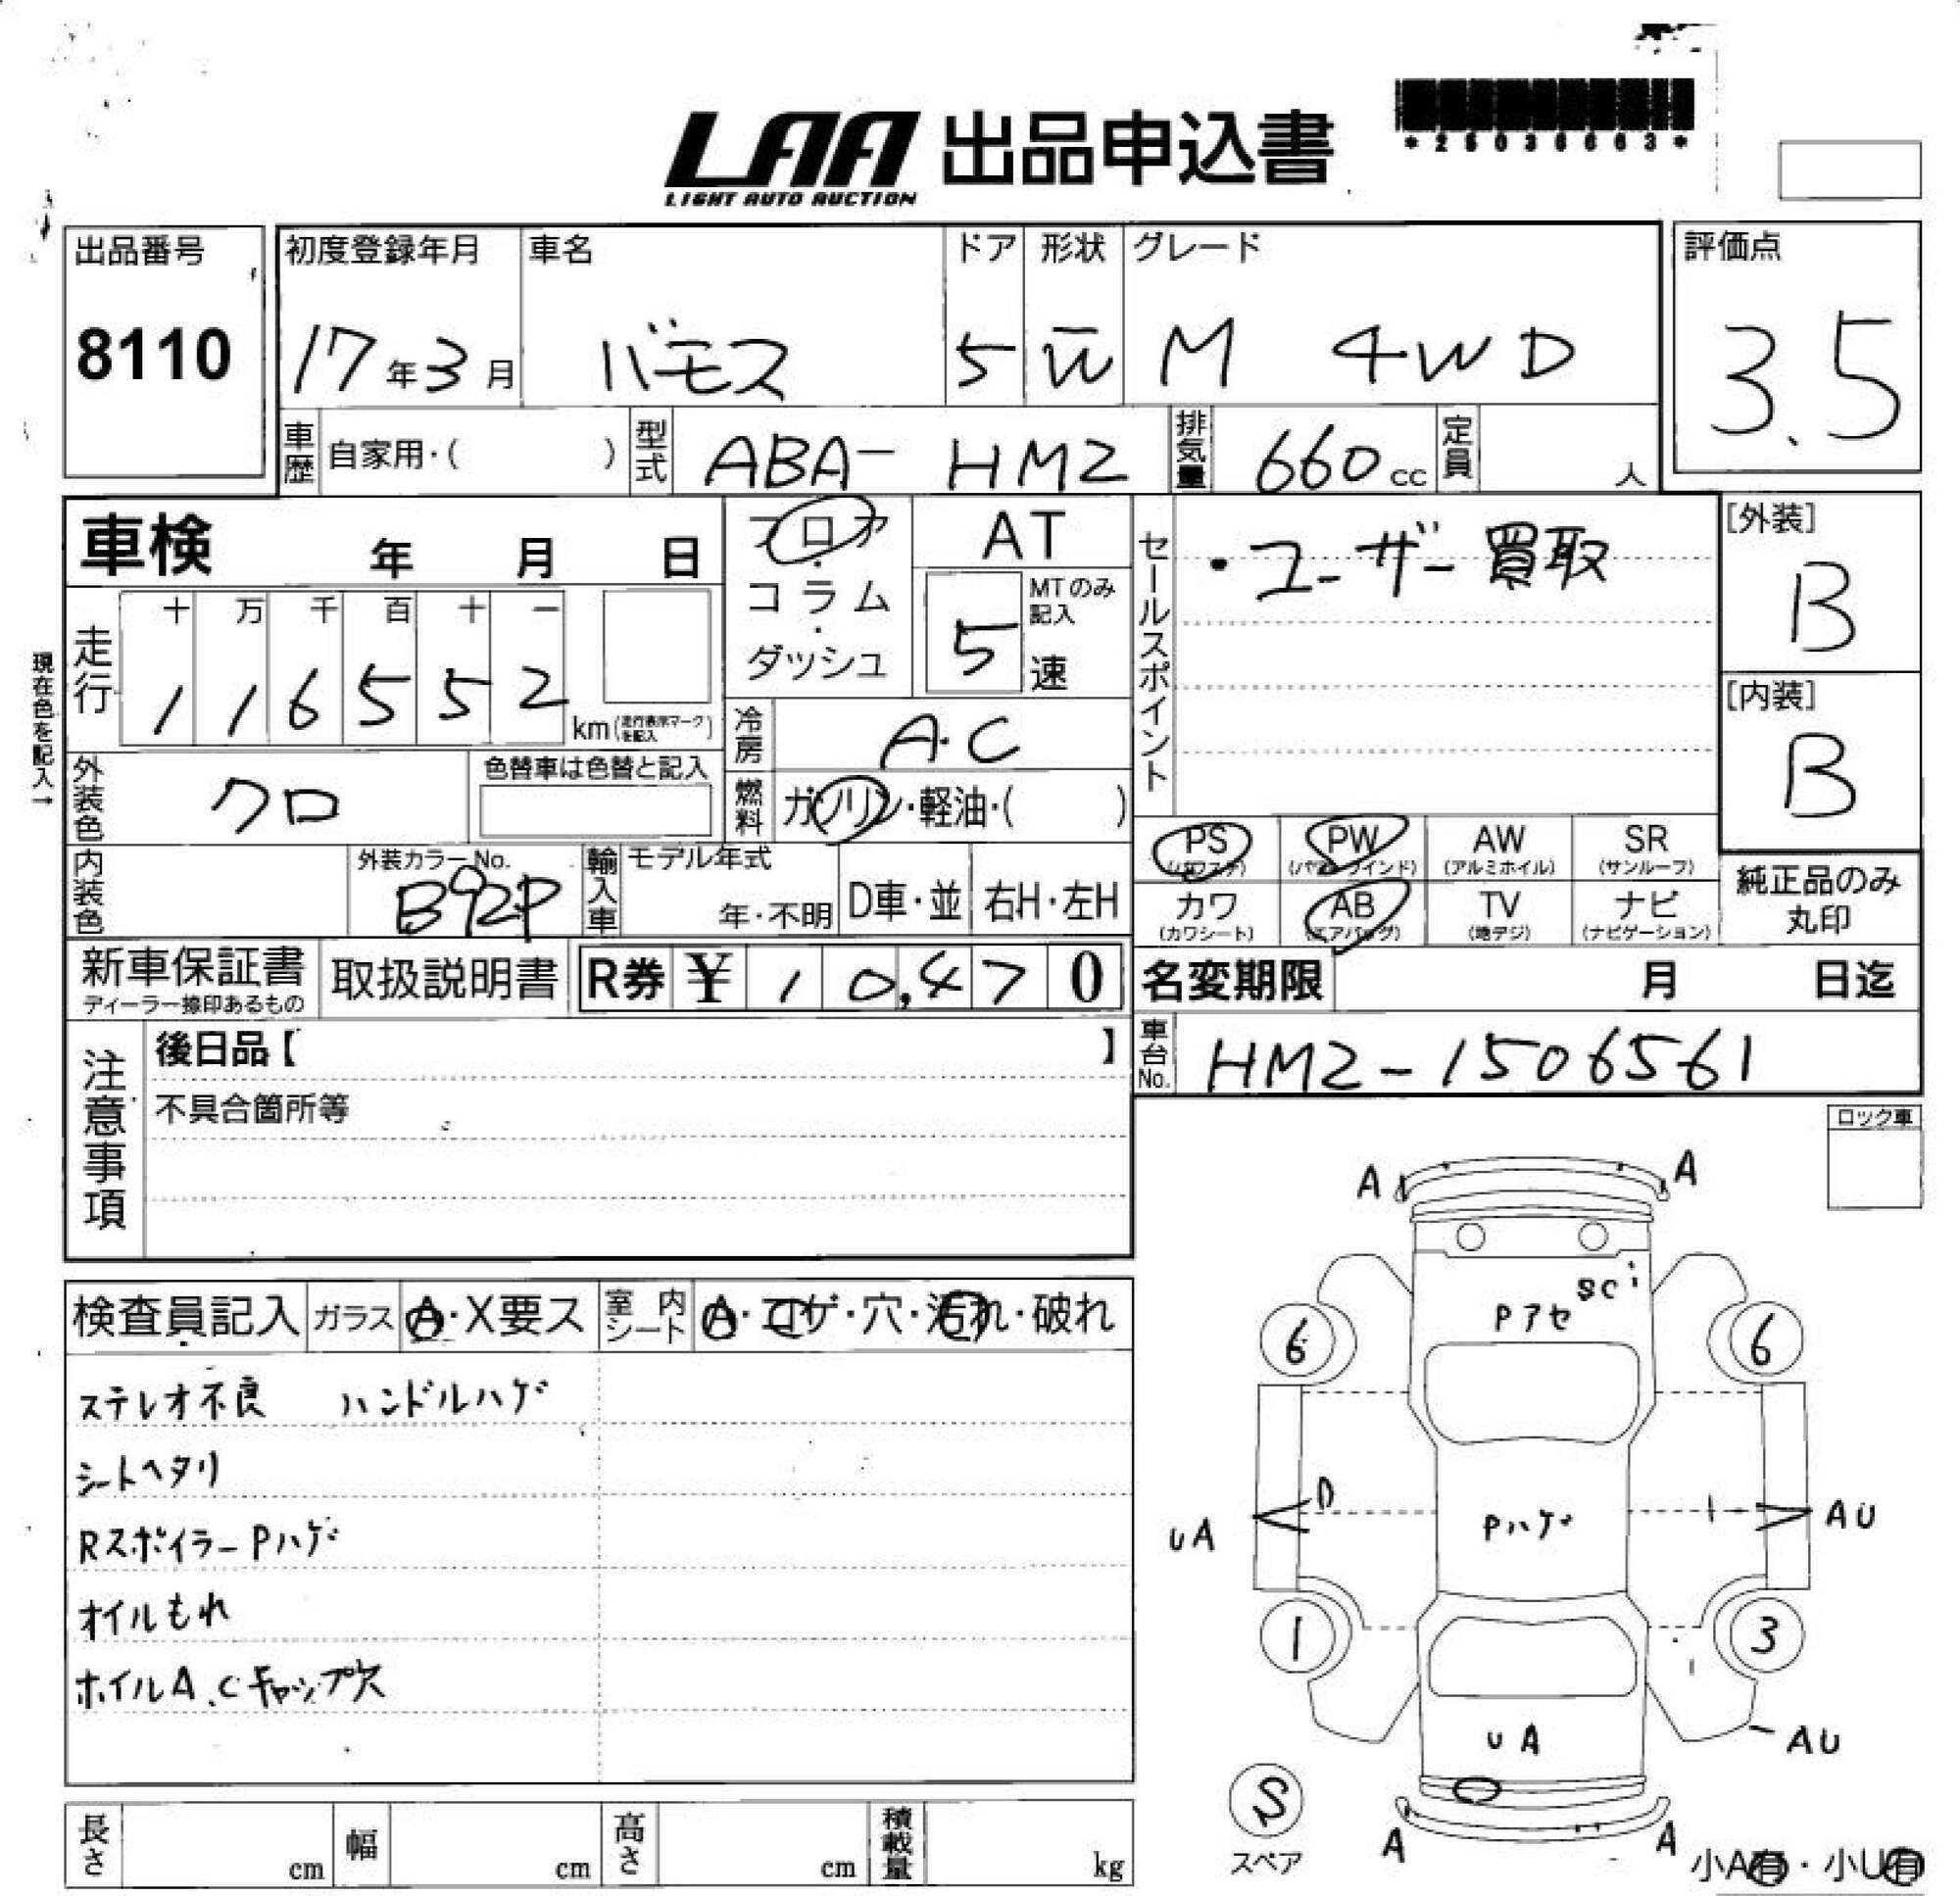 LAA 出品申込書
LIGHT AUTO AUCTION
出品番号
8110
初度登録年月
17年3月
車名
バモス
ドア
5
形状
W
グレード
M 4WD
評価点
3.5
車歴 自家用・( )
型式 ABA- HM2
排気量 660cc
定員 人
車検 年 月 日
フロア・コラム・ダッシュ
AT
MTのみ記入
5速
セールスポイント
・ユーザー買取
[外装]
B
[内装]
B
現在色を記入→
走行
十 万 千 百 十 一
1 1 6 5 5 2
km(走行表示マークを記入)
冷房 A.C
外装色 クロ
色替車は色替と記入
燃料 ガソリン・軽油・( )
PS AW SR PW
(パワステ) (パワーウインド) (アルミホイル) (サンルーフ)
カワ AB TV ナビ
(カワシート) (エアバッグ) (地デジ) (ナビゲーション)
純正品のみ
丸印
内装色
外装カラーNo.
B92P
輸入車
モデル年式
年・不明
D車・並
右H・左H
新車保証書
ディーラー捺印あるもの
取扱説明書
R券 ¥ 1 0,4 7 0
名変期限 月 日迄
車台No. HM2-1506561
注意事項
後日品【 】
不具合箇所等
ロック車
検査員記入 ガラス A・X要ス
室内シート A・コゲ・穴・汚れ・破れ
ステレオ不良 ハンドルハゲ
シートヘタリ
Rスポイラー Pハゲ
オイルもれ
ホイルA.Cキャップ欠
A A
SC
Pアセ
6 6
D
UA Pハゲ AU
1 3
UA AU
S
スペア
A A
小A有・小U有
長さ cm 幅 cm 高さ cm 積載量 kg